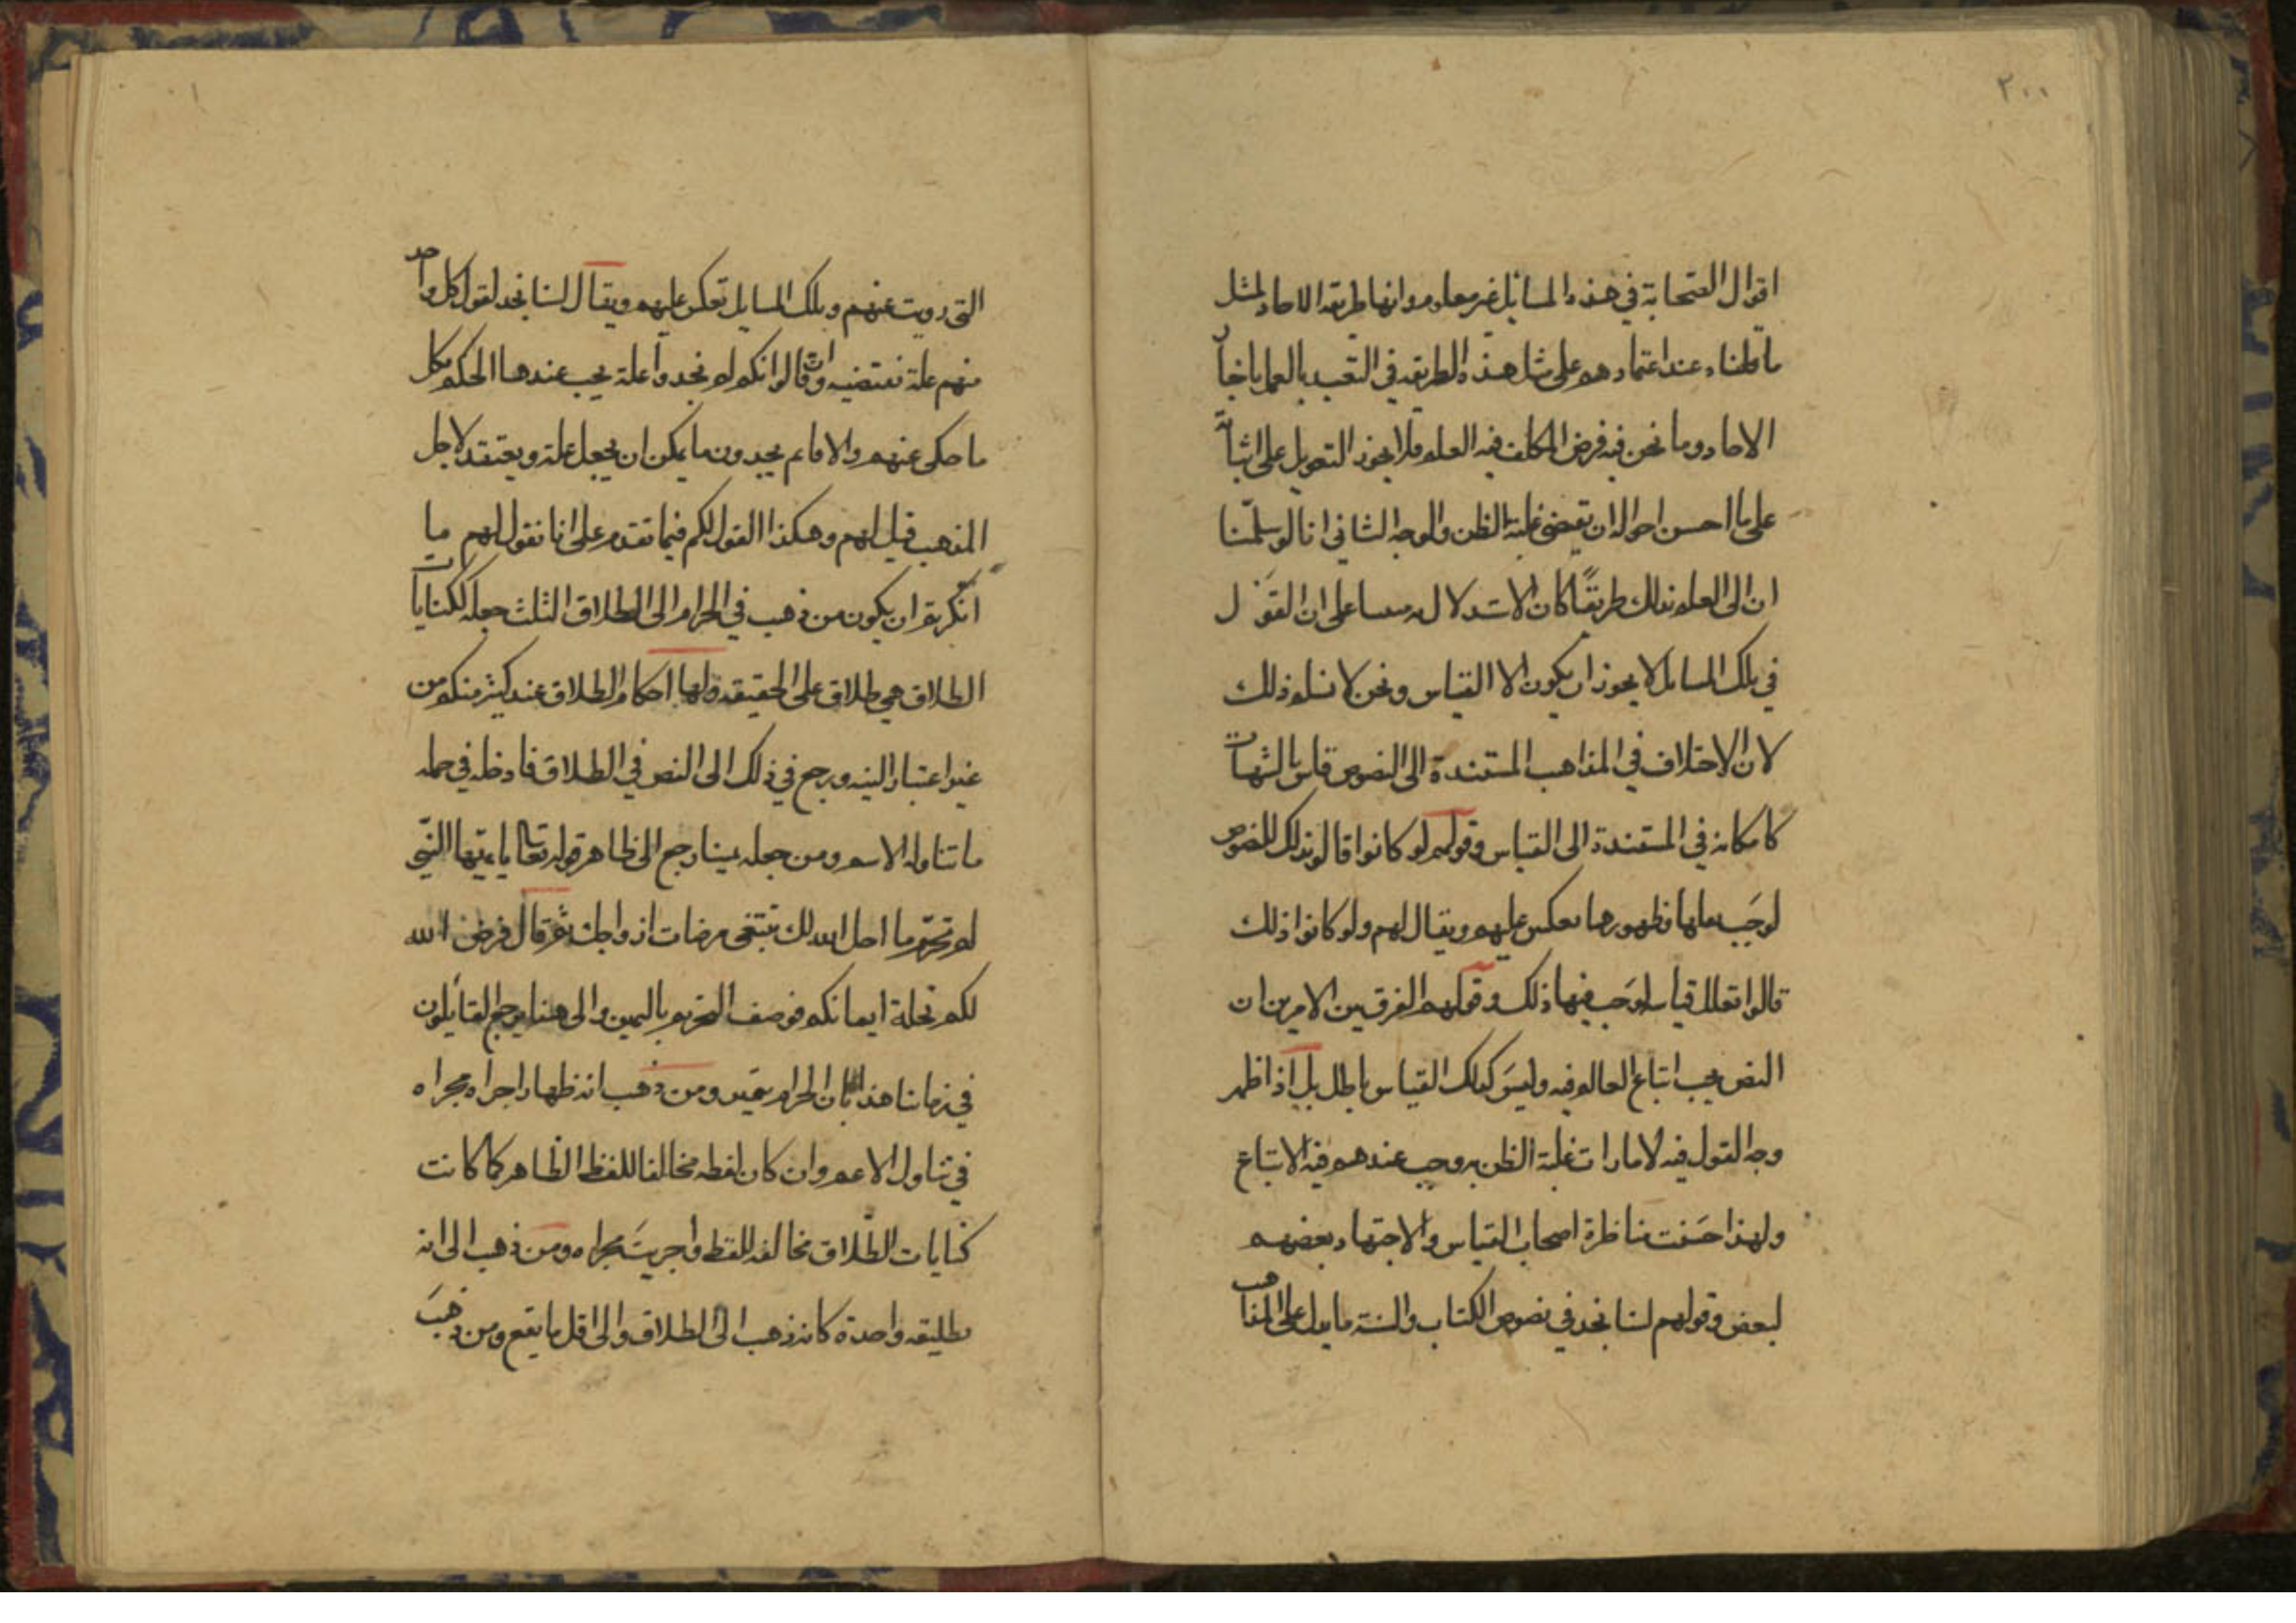 ٢٠٠
اقوال الصحابة في هذه المسائل غير معلومه وانها طريقه الاحاد لمثل
ما قلناه عند اعتمادهم على مثل هذه الطريقه في التعبد بالعمل باخبار
الاحاد وما نحن فيه فرض المكلف فيه العلم فلا يجوز التعويل على اثباته
على ما احسن احواله ان تقتضى غلبة الظن والوجه الثاني انا لو سلمنا
ان الى العلم بذلك طريقًا كان الاستدلال به مبنيا على ان القول
في تلك المسائل لا يجوز ان يكون الا القياس ونحن لا نسلم ذلك
لان الاختلاف في المذاهب المستندة الى النصوص قاس بالشبهات
كامكانه في المستندة الى القياس وقولهم لو كانوا قالو بذلك للنصوص
لوجَب نقلها وظهورها نعكس عليهم ويقال لهم ولو كانوا ذلك
قالوا تعلل قياس لوَجب فيها ذلك وقولهم الفرق بين الامرين ان
النص يجب اتباع العالم فيه وليسَ كذلك القياس باطل بل اذا ظهر
وجه القول فيه لامارات غلبة الظن به وجب عندهم فيه الاتباع
ولهذا حَسنت مناظرة اصحاب القياس والاجتهاد بعضهم
لبعض وقولهم لسنا نجد في نصوص الكتاب والسنة ما يدل على المذاهب
١
التى رويت عنهم وبلك المسايل تعكس عليهم ويقال لسنا نجد لقول كل واحد
منهم علة تقتضيه وان قالوا انكم لم تجدوا علة يجب عندها الحكم بكل
ما حكى عنهم والا فانهم يجدون ما يمكن ان يجعل علة ويعتقد لاجل
المذهب قيل لهم وهكذا القول لكم فيما تقدم على انا نقول لهم ما
انكرتم ان يكون من ذهب في الحرام الى الطلاق الثلث جعله لكنايات
الطلاق هي طلاق على الحقيقه ولها احكام الطلاق عند كثير منكم من
غير اعتبار النيه ورجع في ذلك الى النص في الطلاق فادخله في جمله
ما تناوله الاسم ومن جعله يمينا رجع الى ظاهر قوله تعالى يا ءيّها النّبى
لم تحرّم ما احل الله لك تبتغى مرضات ازواجك ثم قال فرض الله
لكم تحلة ايمانكم فوصف التحريم باليمين والى هذا يرجع القائلون
في زماننا هذا بان الحرام يمين ومن ذهب انه ظهار اجراه مجراه
في تناول الاعم وان كان لفظه مخالفا للفظ الظاهر كما كانت
كنايات الطّلاق مخالفه للفظه واجريتَ مجراه ومن ذهب الى انه
تطليقه واحدة كانه ذهب الى الطلاق والى اقل ما يقع ومن ذهبَ